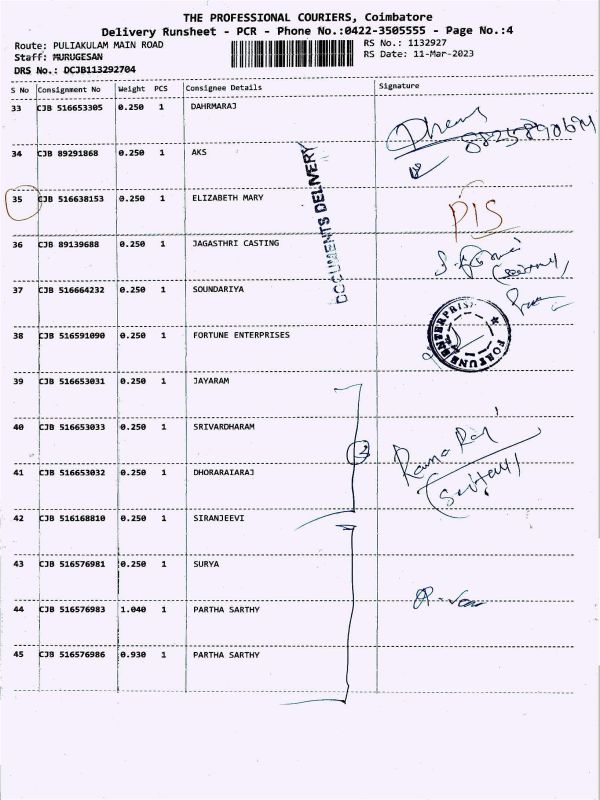 THE PROFESSIONAL COURIERS, Coimbatore
Delivery Runsheet - PCR - Phone No.:0422-3505555 - Page No.:4
Route: PULIAKULAM MAIN ROAD
RS No.: 1132927
Staff: MURUGESAN
RS Date: 11-Mar-2023
DRS No.: DCJB113292704
S No Consignment No Weight PCS Consignee Details Signature
33 CJB 516653305 0.250 1 DAHRMARAJ
34 CJB 89291868 0.250 1 AKS
35 CJB 516638153 0.250 1 ELIZABETH MARY PIS
36 CJB 89139688 0.250 1 JAGASTHRI CASTING
37 CJB 516664232 0.250 1 SOUNDARIYA
38 CJB 516591090 0.250 1 FORTUNE ENTERPRISES
39 CJB 516653031 0.250 1 JAYARAM
40 CJB 516653033 0.250 1 SRIVARDHARAM
41 CJB 516653032 0.250 1 DHORARAIARAJ
42 CJB 516168810 0.250 1 SIRANJEEVI
43 CJB 516576981 0.250 1 SURYA
44 CJB 516576983 1.040 1 PARTHA SARTHY
45 CJB 516576986 0.930 1 PARTHA SARTHY
DOCUMENTS DELIVERY
FORTUNE ENTERPRISES